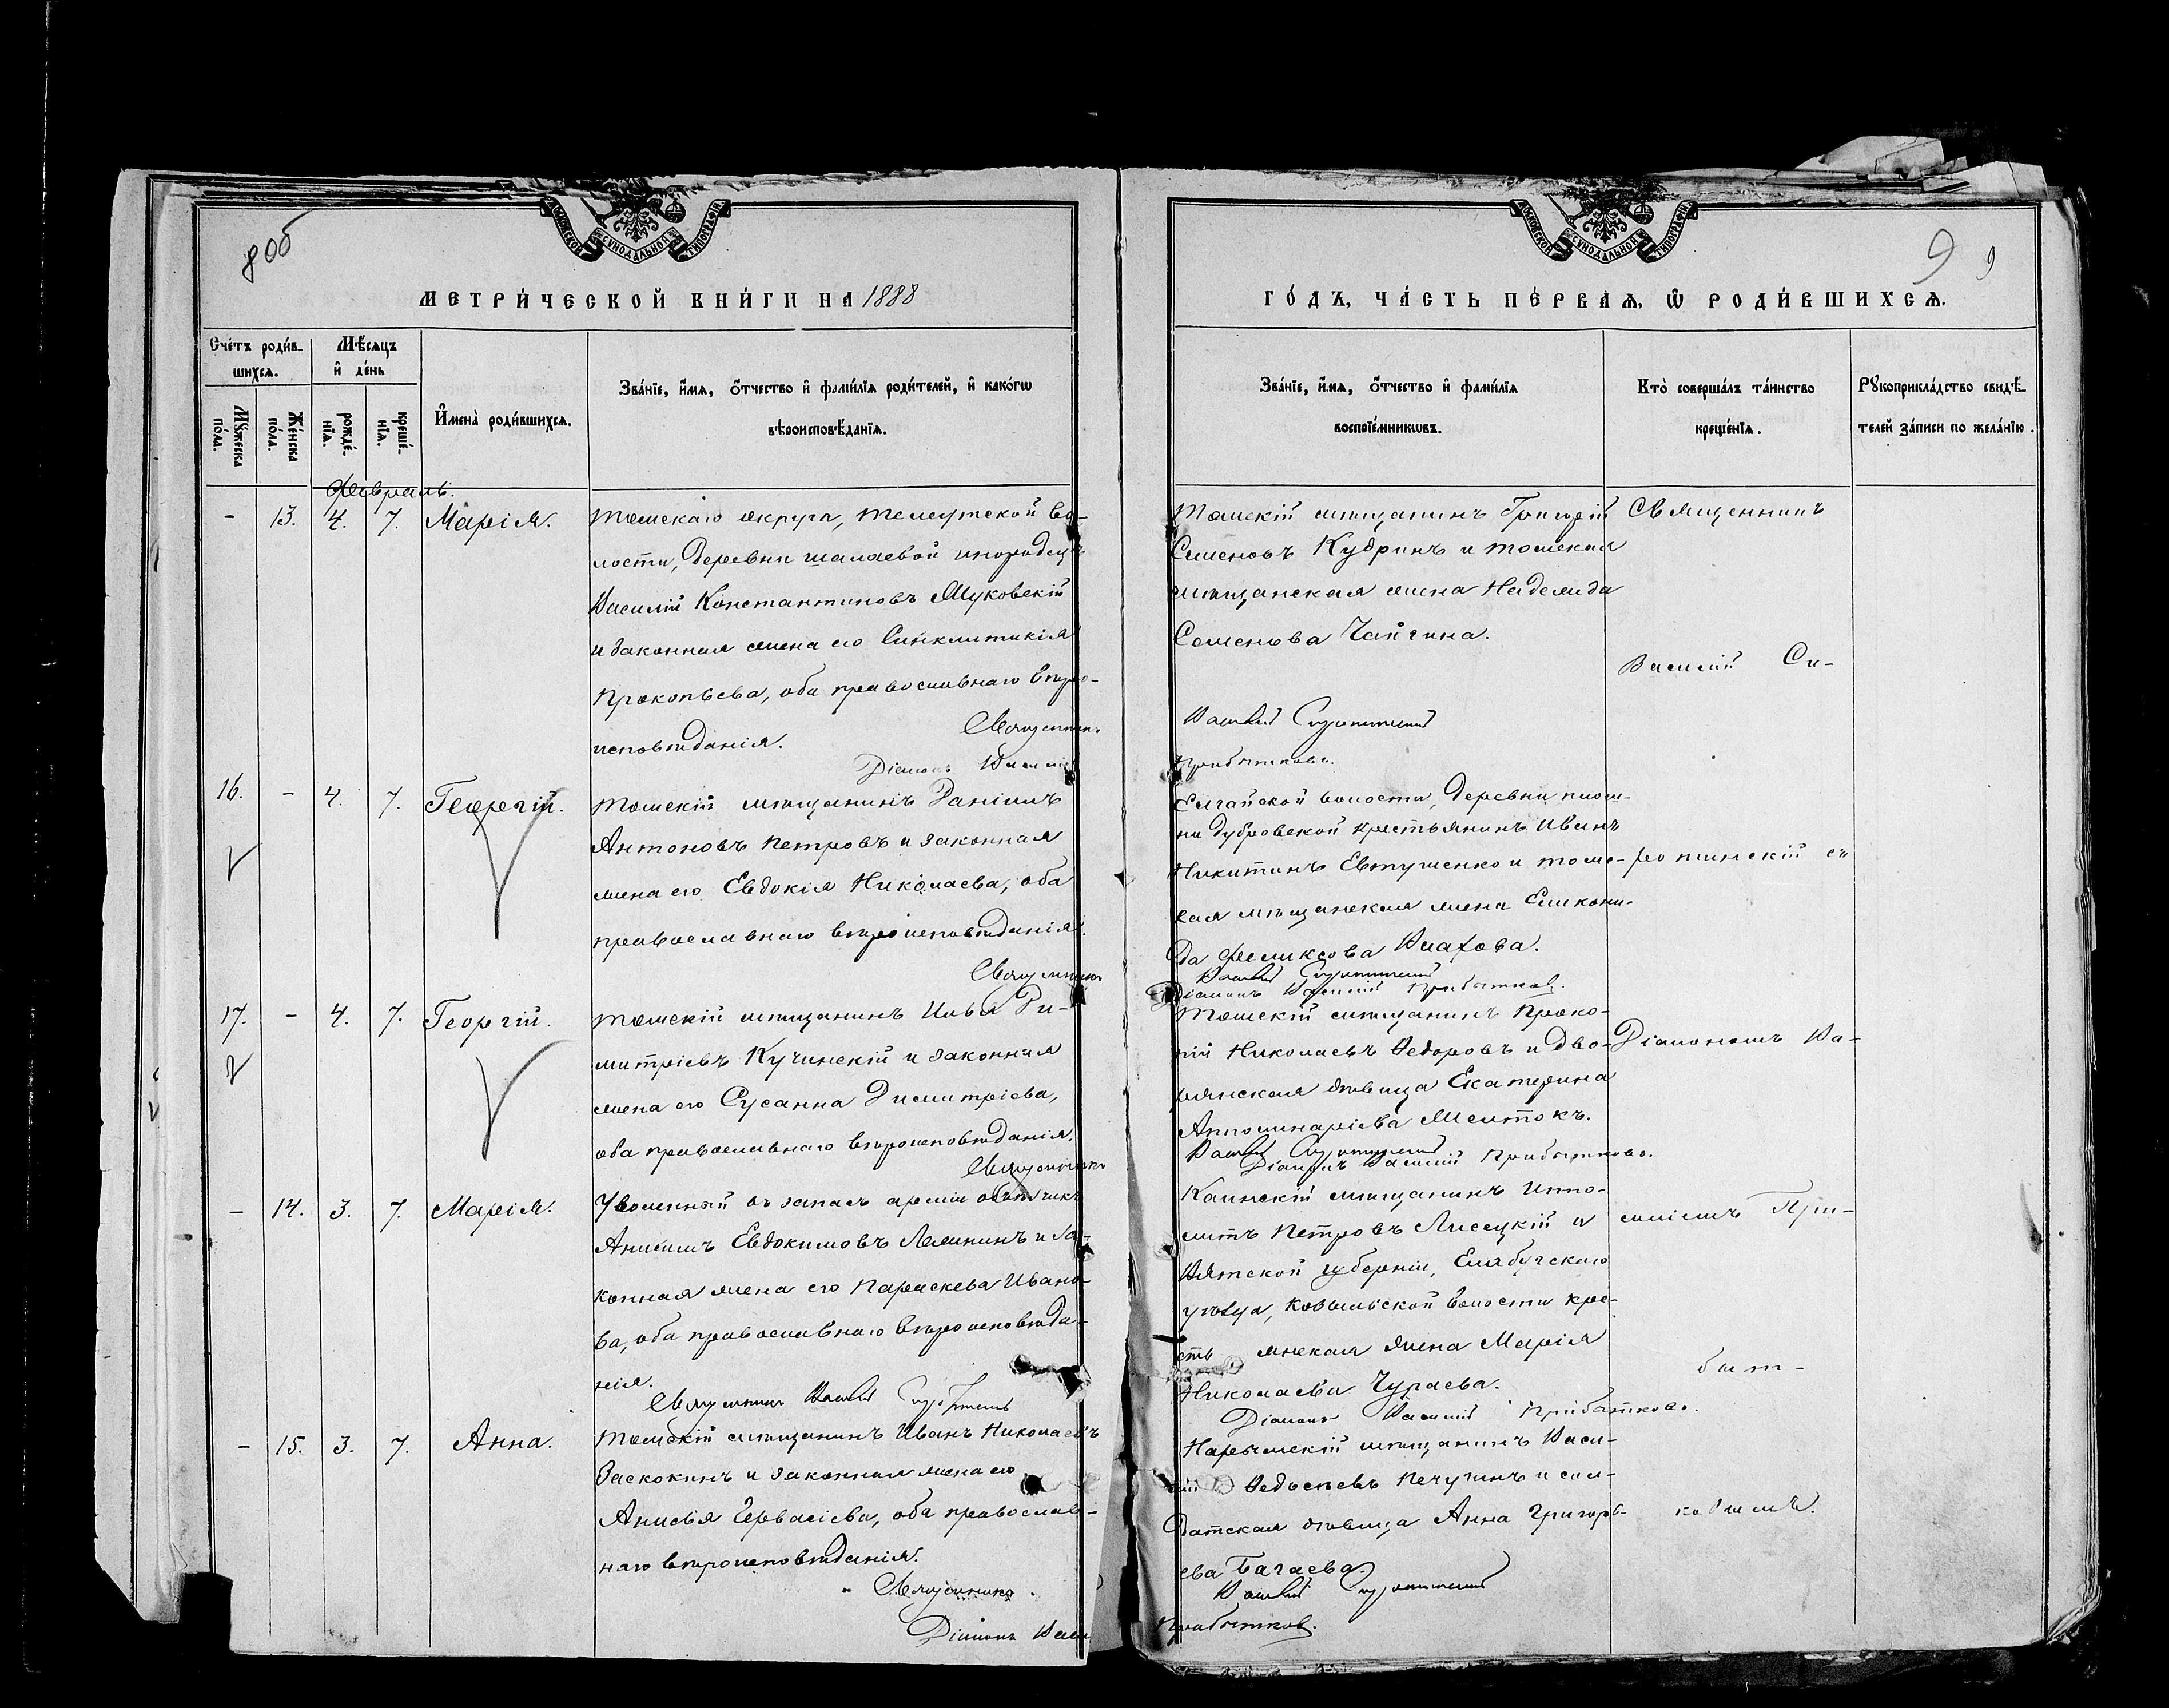 8об
МОСКОВСКОЙ СѴНОДАЛЬНОЙ ТИПОГРАФІИ
МЕТРИ́ЧЕСКОЙ КНИ́ГИ НА 1888
Сче́тъ роди́в-
шихсѧ.
Мѣ́сѧцъ
и҆ де́нь
Мꙋ́жеска
по́ла.
Же́нска
по́ла.
рожде́-
нїѧ.
креще́-
нїѧ.
И҆мена̀ роди́вшихсѧ.
Зва́нїе, и҆́мѧ, ѻ҆́тчество и҆ фами́лїѧ роди́телей, и҆ како́гѡ
вѣроисповѣ́данїѧ.
Февраль.
- 13. 4. 7. Марія.
Томскаго округа, Телеутской во-
лости, деревни Шалаевой инородецъ
Василій Константиновъ Муковскій
и законная жена его Синклитикія
Прокопьева, оба православнаго вѣро-
исповѣданія.
Священникъ
Діаконъ Василій
16. - 4. 7. Георгій.
Томскій мѣщанинъ Даніилъ
Антоновъ Петровъ и законная
жена его Евдокія Николаева, оба
православнаго вѣроисповѣданія.
Священникъ
17. - 4. 7. Георгій.
Томскій мѣщанинъ Илья Ди-
митріевъ Кучинскій и законная
жена его Сусанна Димитріева,
оба православнаго вѣроисповѣданія.
Священникъ
- 14. 3. 7. Марія.
Уволенный въ запасъ арміи объѣзчикъ
Анисимъ Евдокимовъ и за-
конная жена его Параскева Ивано-
ва, оба православнаго вѣроисповѣда-
нія.
Священникъ Василій
- 15. 3. 7. Анна.
Томскій мѣщанинъ Иванъ Николаевъ
Заскокинъ и законная жена его
Анисья Гервасіева, оба православ-
наго вѣроисповѣданія.
Священникъ
Діаконъ Васи
9 9
МОСКОВСКОЙ СѴНОДАЛЬНОЙ ТИПОГРАФІИ
ГО́ДЪ, ЧА́СТЬ ПЕ́РВАѦ, Ѡ҆ РОДИ́ВШИХСѦ.
Зва́нїе, и҆́мѧ, ѻ҆́тчество и҆ фами́лїѧ
воспрїе́мникѡвъ.
Кто̀ соверша́лъ та́инство
креще́нїѧ.
Рꙋкоприкла́дство свидѣ́-
телей за́писи по жела́нїю.
Томскій мѣщанинъ Григорій
Семеновъ Кудринъ и томская
мѣщанская жена Надежда
Семенова Чайгина.
Василій
Прибытковъ.
Елгайской волости, деревни
дубровской крестьянинъ Иванъ
Никитинъ Евтушенко и томс-
кая мѣщанская жена
да Феликсова Влахова.
Василій
Діаконъ Василій Прибытковъ.
Томскій мѣщанинъ Проко-
пій Николаевъ Ѳедоровъ и дво-
рянская дѣвица Екатерина
Апполинаріева
Василій
Діаконъ Василій Прибытковъ.
Каинскій мѣщанинъ Иппо-
литъ Петровъ Лисецкій и
Вятской губерніи, Елабугскаго
уѣзда, волости кре-
сть янская жена Марія
Николаева Чураева.
Діаконъ Василій Прибытковъ.
Нарымскій мѣщанинъ Васи-
лій Печугинъ и сол-
датская дѣвица Анна Григорь-
ева Багаева.
Василій
Прибытковъ.
Священникъ
Василій Си-
ропинскій съ
Діакономъ Ва-
силіемъ При-
быт-
ковымъ.